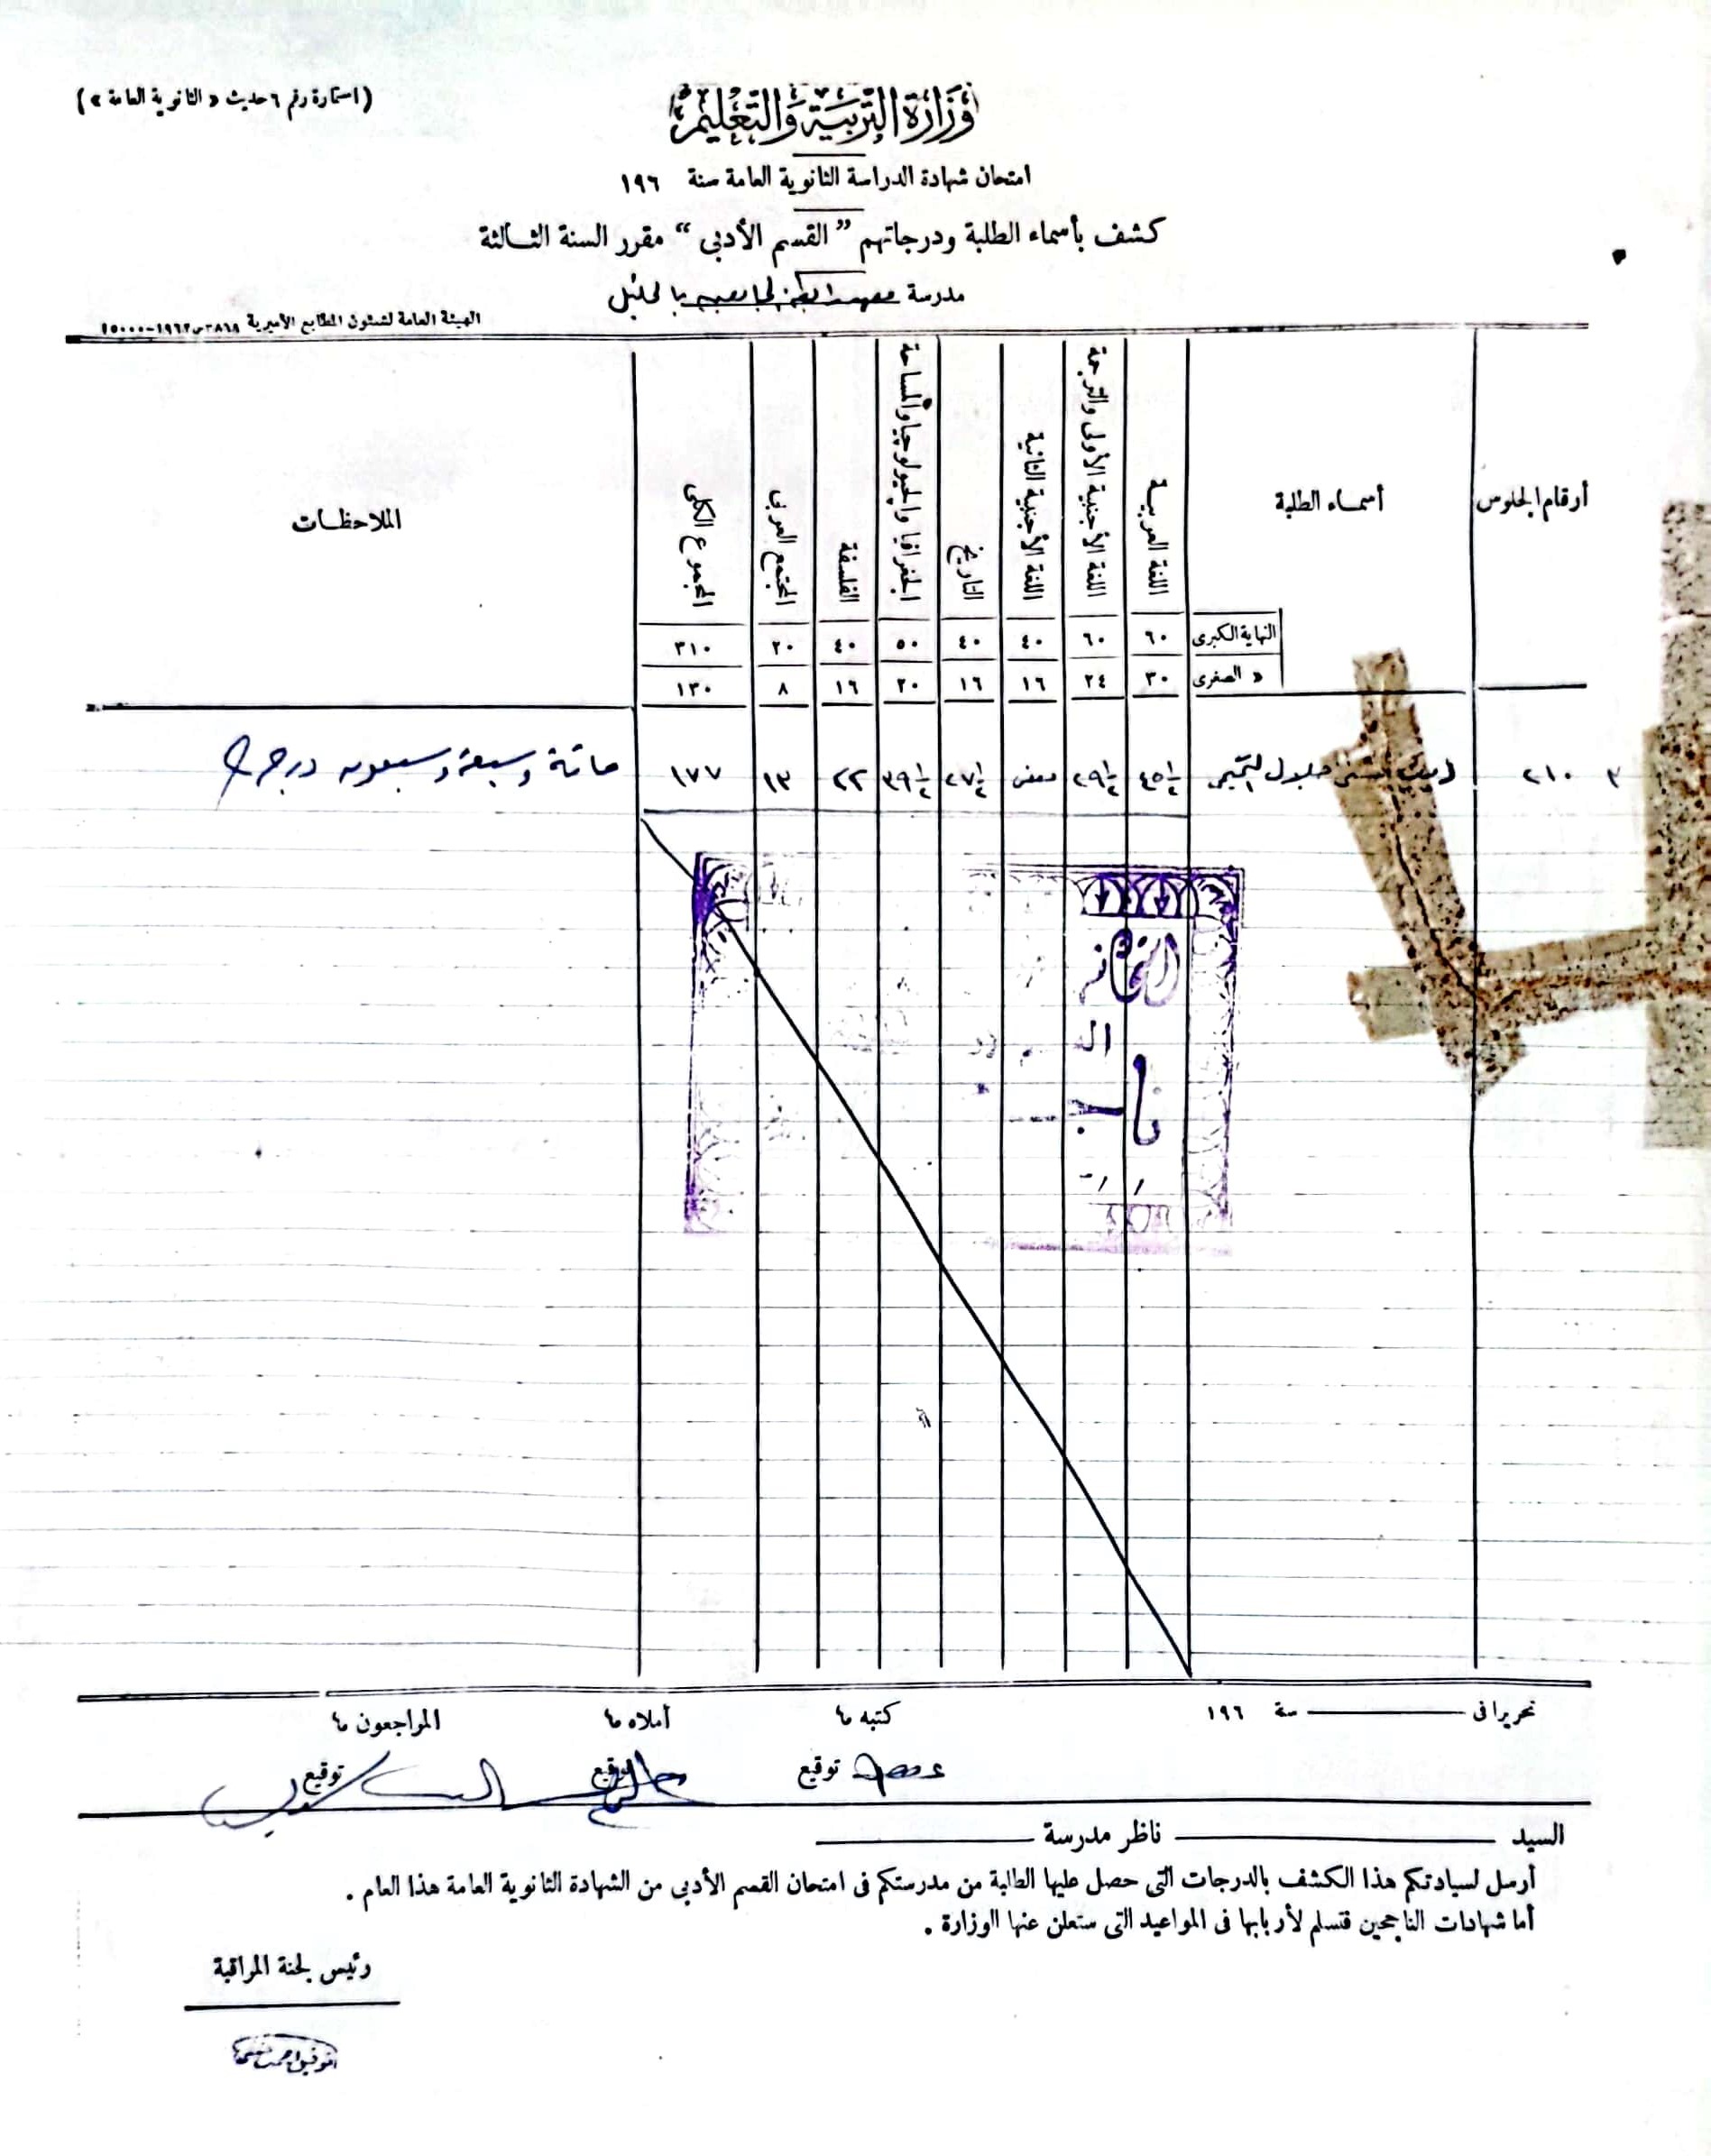 (استمارة رقم ٦ حديث « الثانوية العامة »)
وزارة التربية والتعليم
امتحان شهادة الدراسة الثانوية العامة سنة ١٩٦
كشف بأسماء الطلبة ودرجاتهم " القسم الأدبى " مقرر السنة الثالثة
مدرسة بالخليل
الهيئة العامة لشئون المطابع الأميرية
أرقام الجلوس
أسماء الطلبة
اللغة العربية
اللغة الأجنبية الأولى والترجمة
اللغة الأجنبية الثانية
التاريخ
الجغرافيا والجيولوجيا والمساحة
الفلسفة
المجتمع العربى
المجموع الكلى
الملاحظات
النهاية الكبرى ٦٠ ٦٠ ٤٠ ٤٠ ٥٠ ٤٠ ٢٠ ٣١٠
« الصغرى ٣٠ ٢٤ ١٦ ١٦ ٢٠ ١٦ ٨ ١٣٠
٣ ٢١٠ جلال التميمي ٤٥½ ٢٩½ معفى ٢٧½ ٣٩½ ٢٢ ١٣ ١٧٧ مائة وسبعة وسبعون درجة
تحريرا فى سنة ١٩٦
كتبه
أملاه
المراجعون
توقيع
توقيع
توقيع
السيد ناظر مدرسة
أرسل لسيادتكم هذا الكشف بالدرجات التى حصل عليها الطلبة من مدرستكم فى امتحان القسم الأدبى من الشهادة الثانوية العامة هذا العام .
أما شهادات الناجحين فتسلم لأربابها فى المواعيد التى ستعلن عنها الوزارة .
رئيس لجنة المراقبة